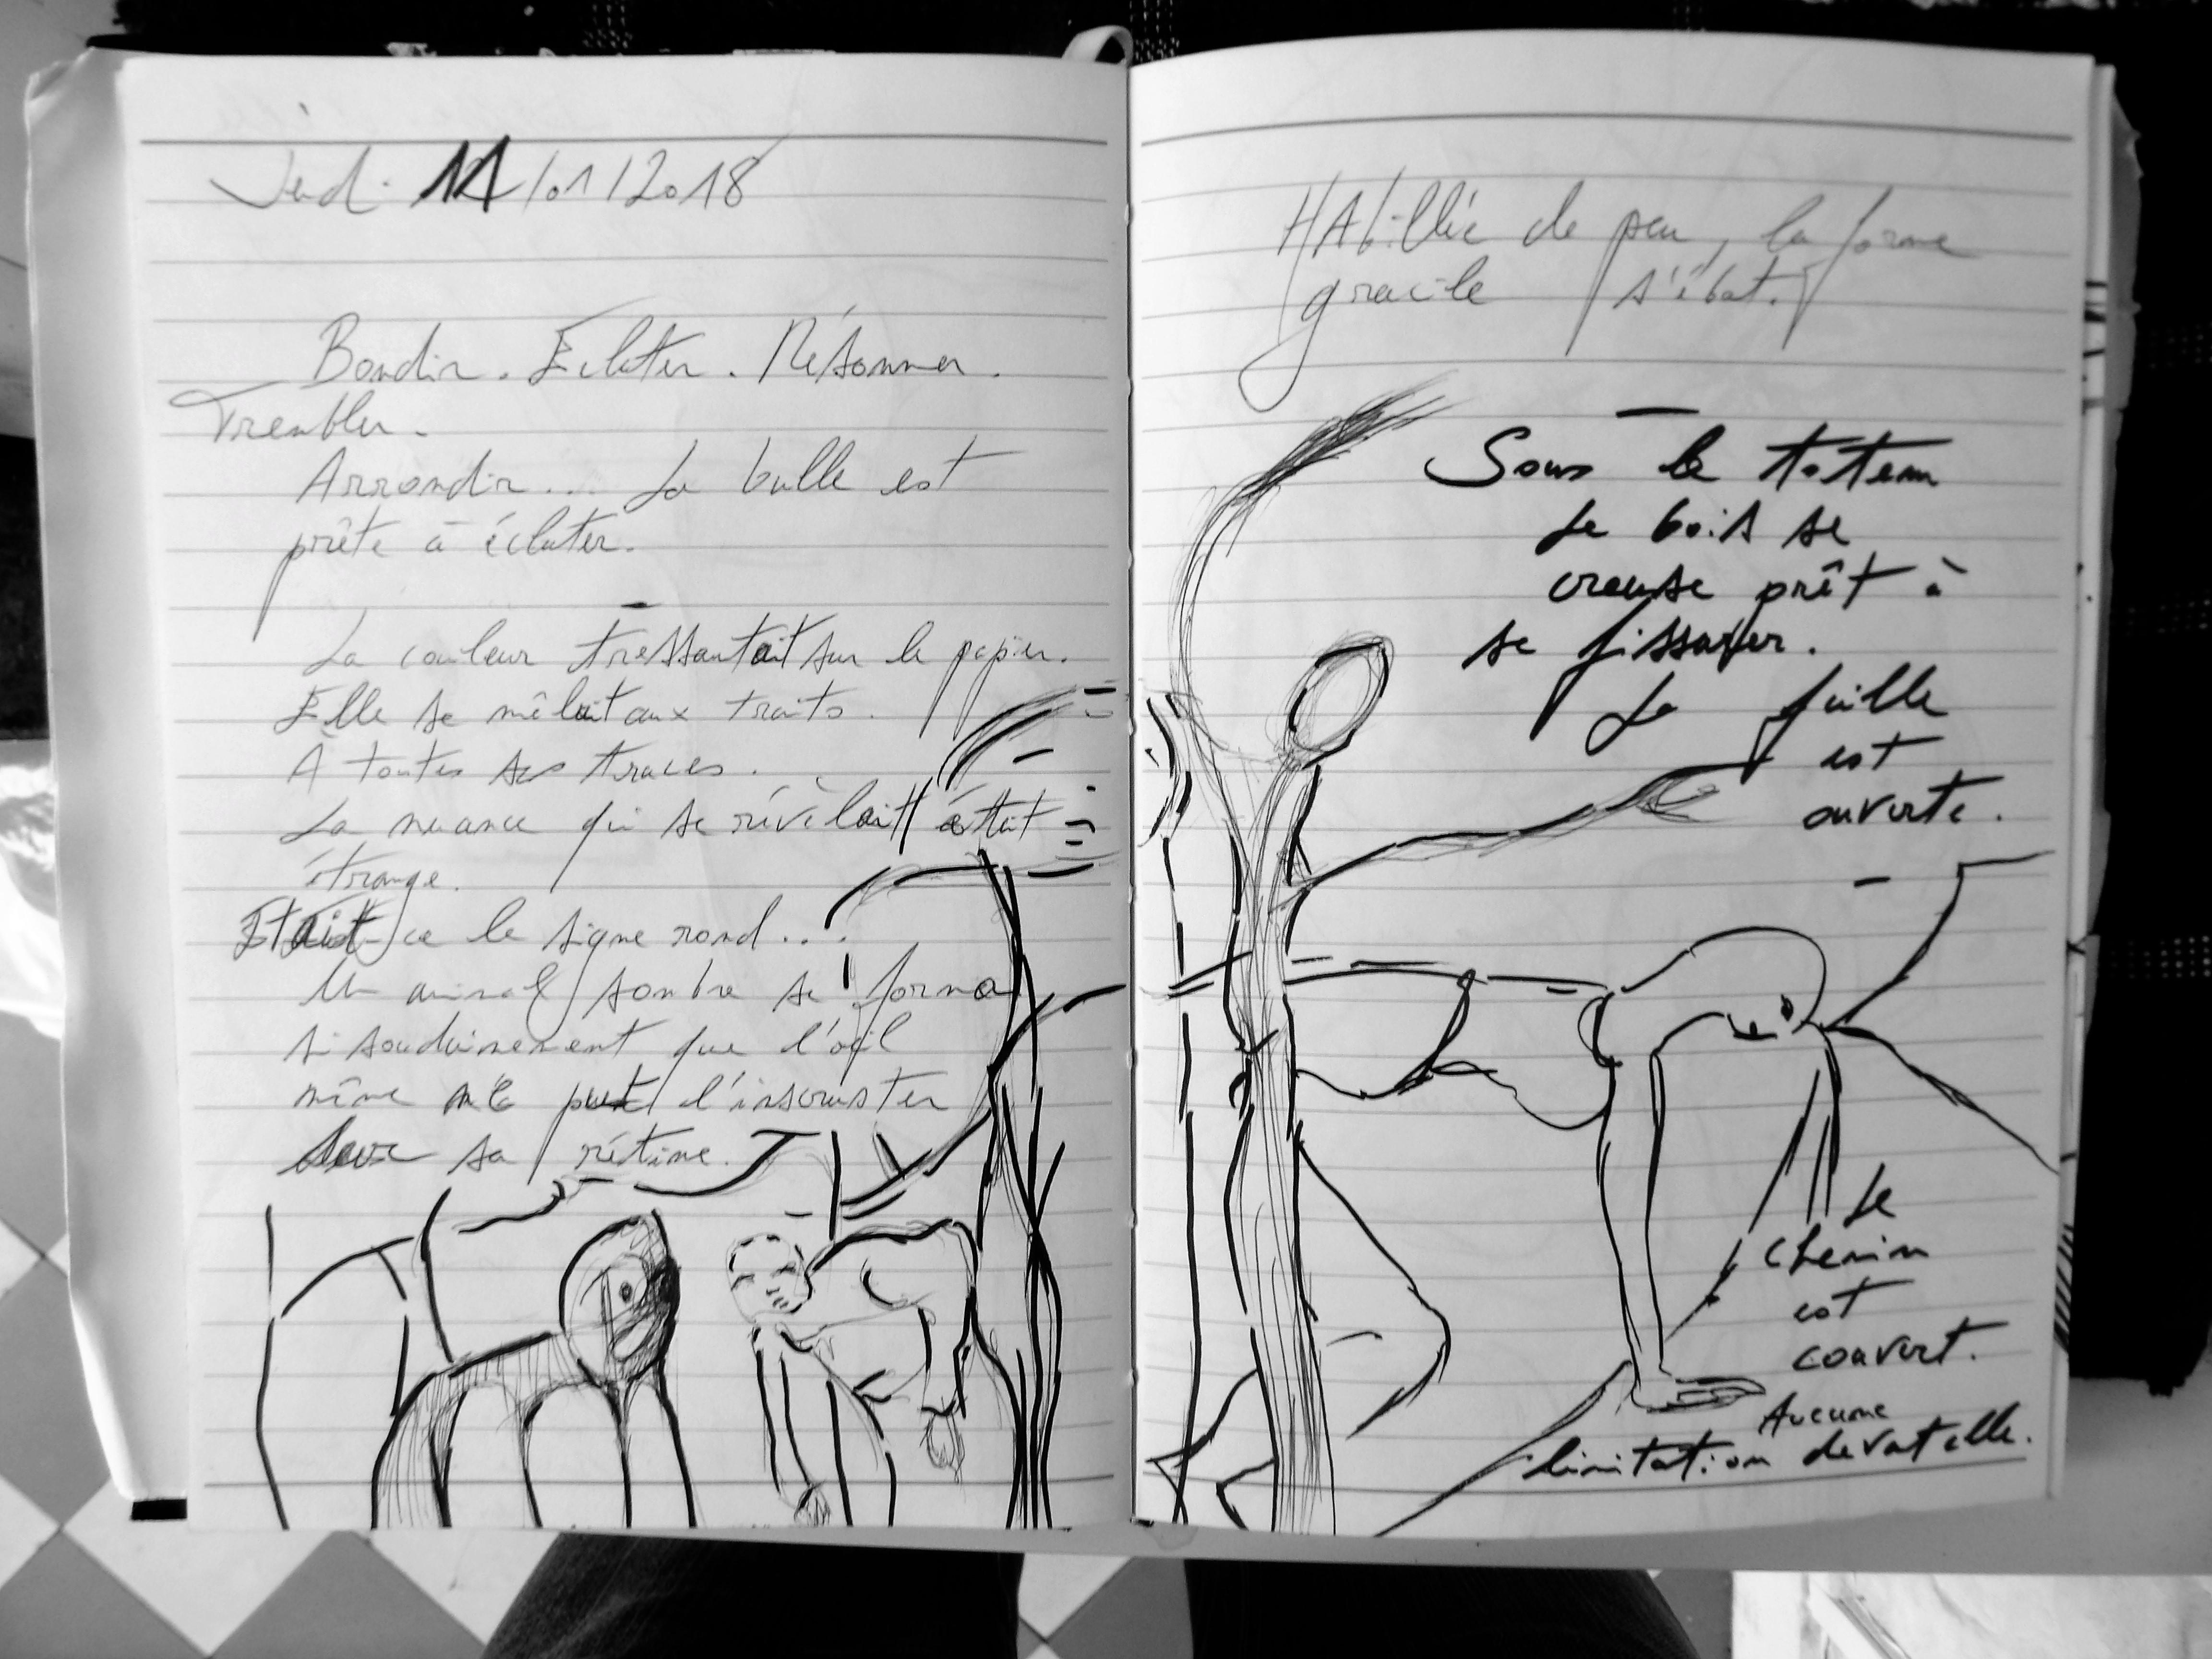 Jeudi 11/01/2018
Bondir. Éclater. Résonner.
Trembler.
Arrondir... La bulle est
prête à éclater.
La couleur tressautait sur le papier.
Elle se mêlait aux traits.
À toutes ses traces.
La nuance qui se révélait était
étrange.
Etait-ce le signe rond...
Un animal sombre se forma
si soudainement que l'œil
même ne put l'incruster
sur sa rétine.
HAbillée de peu, la forme
gracile s'ébat.
Sous le totem
Le bois se
creuse prêt à
se fissurer.
La feuille
est
ouverte.
Le
Chemin
est
couvert.
Aucune
limitation devant elle.